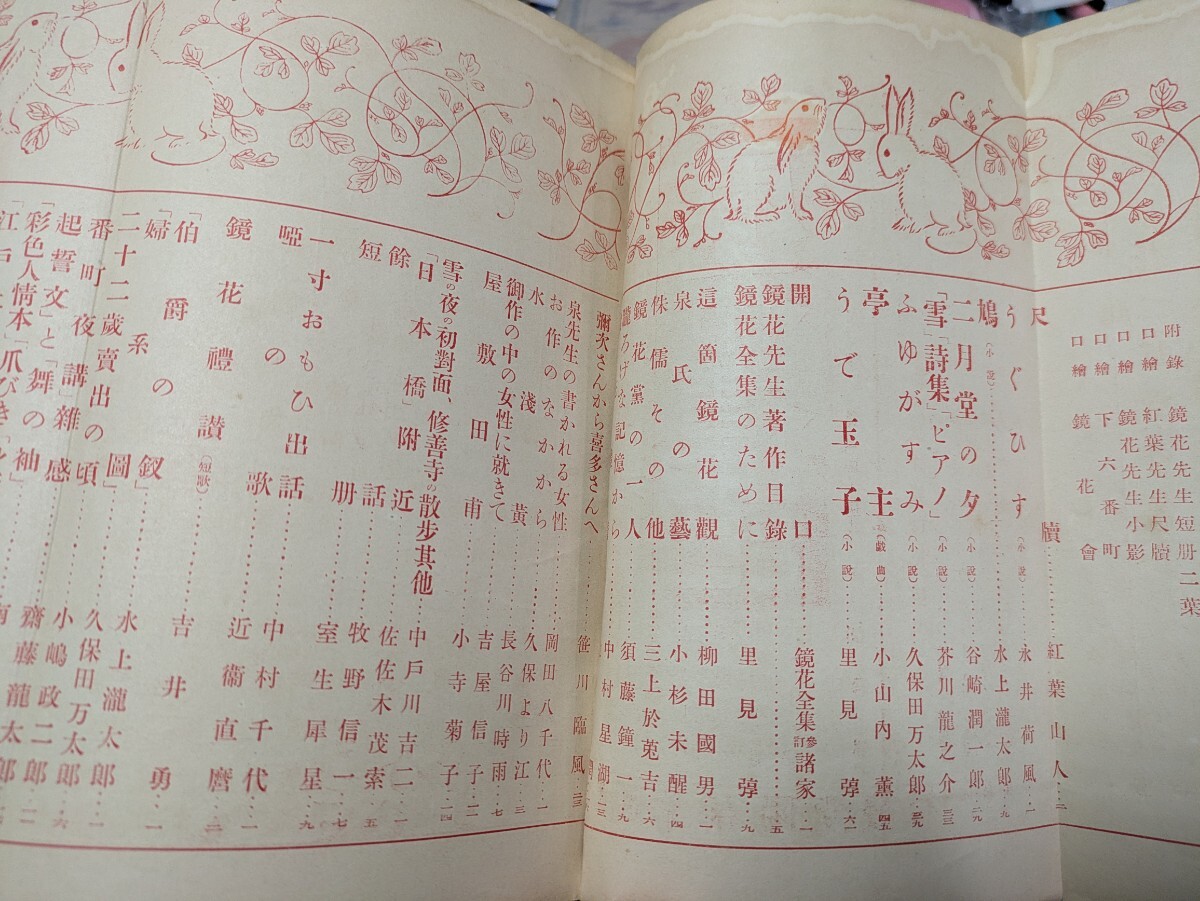 附錄 鏡花先生短册 二葉
口繪 紅葉先生尺牘
口繪 鏡花先生小影
口繪 下六番町
口繪 鏡花會
尺牘……紅葉山人…二
うぐひす(小説)……永井荷風…一
鳩(小説)……水上瀧太郎…九
二月堂の夕(小説)……谷崎潤一郎…
「雪」「詩集」「ピアノ」(小説)……芥川龍之介…三三
ふゆがすみ(小説)……久保田万太郎…三九
亭主(戯曲)……小山内薫…四五
うで玉子(小説)……里見弴…六一
開口……鏡花全集參訂諸家…一
鏡花先生著作目錄……五
鏡花全集のために……里見弴…九
這箇鏡花觀……柳田國男…一
泉氏の藝……小杉未醒…四
侏儒その他……三上於菟吉…六
鏡花黨の一人……須藤鐘一…九
朧ろげな記憶から……中村星湖…一三
彌次さんから喜多さんへ……笹川臨風…二三
泉先生の書かれる女性……岡田八千代…一
お作のなかから……久保より江…三
水淺黃……長谷川時雨…七
御作の中の女性に就きて……吉屋信子…一一
屋敷田甫……小寺菊子…一四
雪の夜の初對面、修善寺の散步其他……中戸川吉二…一
「日本橋」附近……佐佐木茂索…五
餘話……牧野信一…七
短册……室生犀星…九
一寸おもひ出話……中村千代…一
啞の歌……近衞直麿…二
鏡花禮讃(短歌)……吉井勇…一
「伯爵の釵」
「婦系圖」……水上瀧太郎…一
二十二歲賣出の頃……久保田万太郎…一
番町夜講」雜感……小嶋政二郎…六
起誓文」と「舞の袖」……齋藤龍太郎…二
「彩色人情本」「爪びき」
「江戸